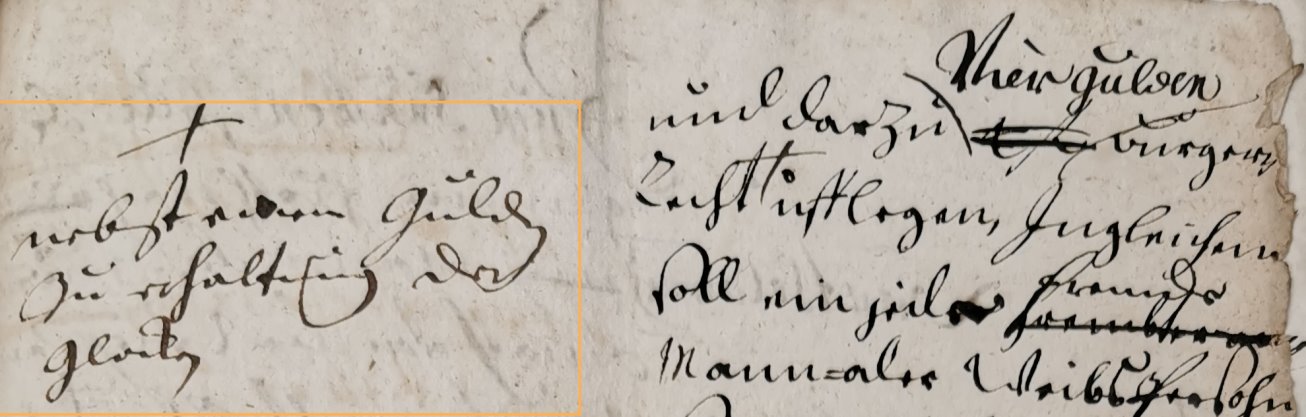 nebst einem Gulden
zu erhaltung der
Glocken
Vier gulden
und darzu burger
Recht ufflegen, Ingleichem
soll ein jedes frembds
Mann= oder Weibs Persohn